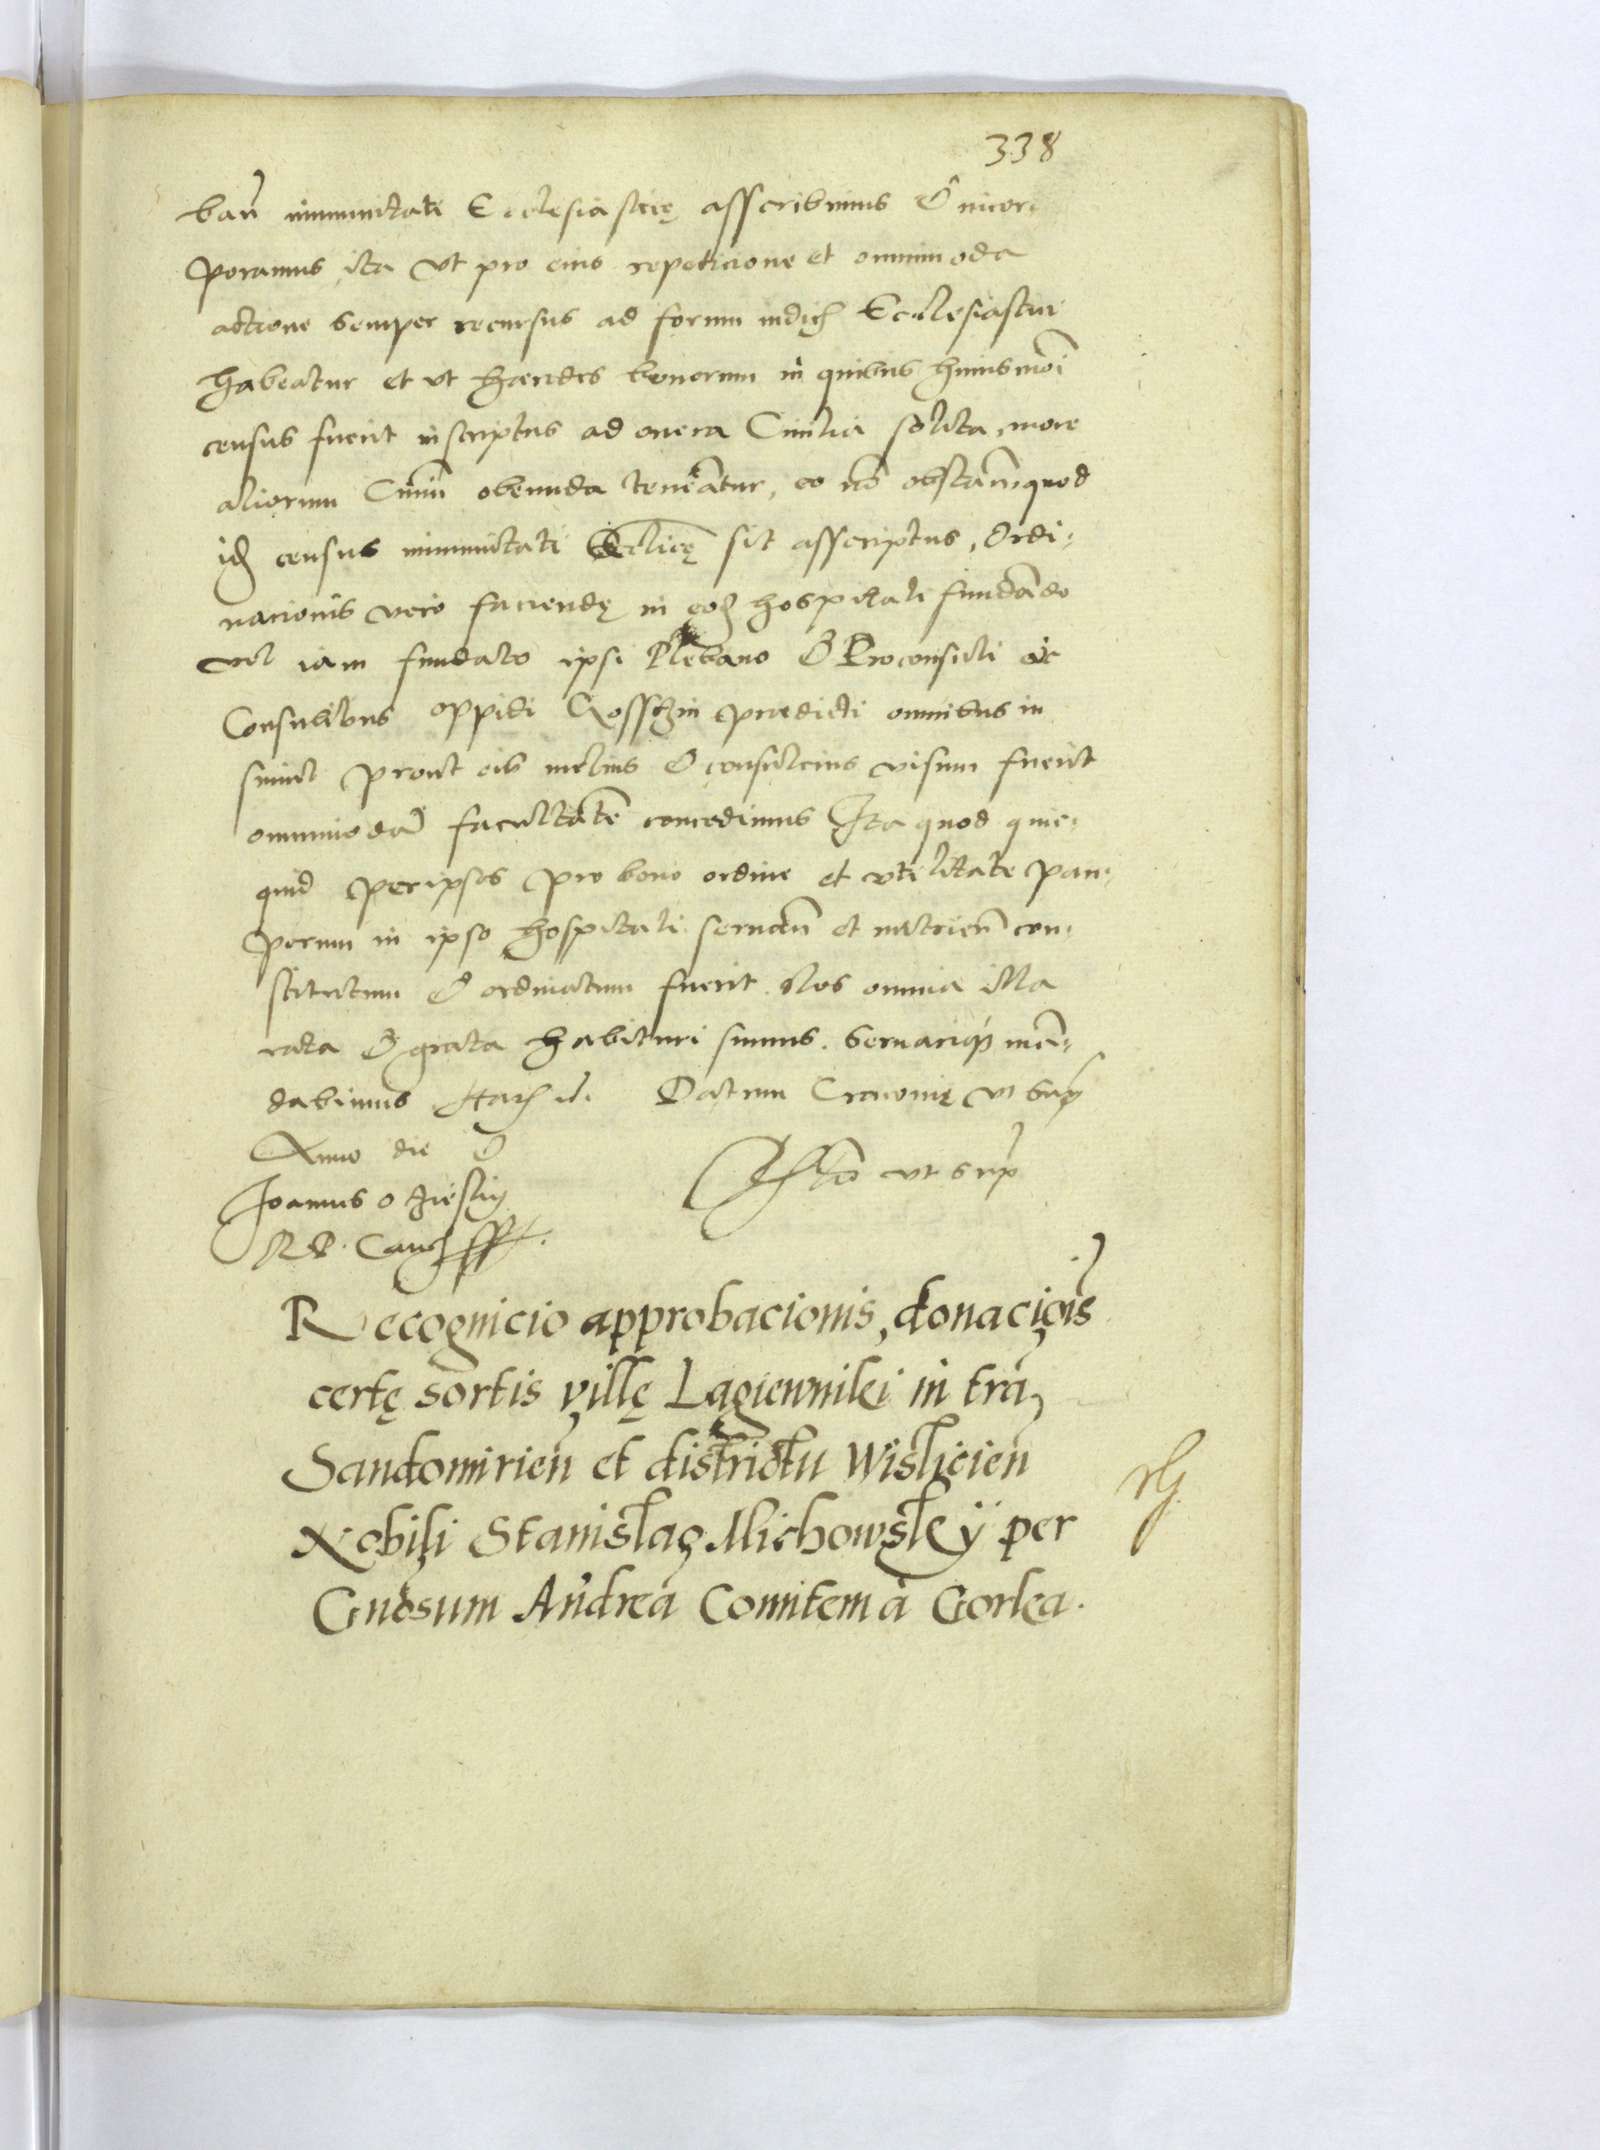 338
bań immunitati Ecclesiasticę asscribimus & incor-
poramus, ita vt pro eius repeticione et omnimoda
actione semper recursus ad forum iudicÿ Ecclesiastici
habeatur et vt hæredes bonorum in quibus huiusmōi
census fuerit inscriptus ad onera Ciuilia solita, more
aliorum Ciuiū obeunda teneātur, eo nō obstāń, quod
idē census immunitati Ecclicę sit asscriptus, Ordi-
nacionis vero faciendę in eod hospitali fundādo
vel iam fundato ipsi Plebano & Proconsuli ac
Consulibus oppidi prædicti omnibus in
simul prout eis melius & consulcius visum fuerit
omnimodā facultatē concedimus Ita quod quic-
quid per ipsos pro bono ordine et vtilitate pau-
perum in ipso hospitali seruań et nutrień con-
stitutum & ordinatum fuerit. Nos omnia illa
rata & grata habituri sumus. Seruariq mā-
dabimus Harū Datum Cracouię vt sup
Anno die &
Joannes Oczieski
R. P. Canc sst.
Rto vt sup
Recognicio approbacionis, donaciōis
certę sortis villę Lagiewniki in tra
Sandomirień et districtu Wislicień
Nobili Stanislao Michowskÿ per
Gnosum Andreā Comitem à Gorka.